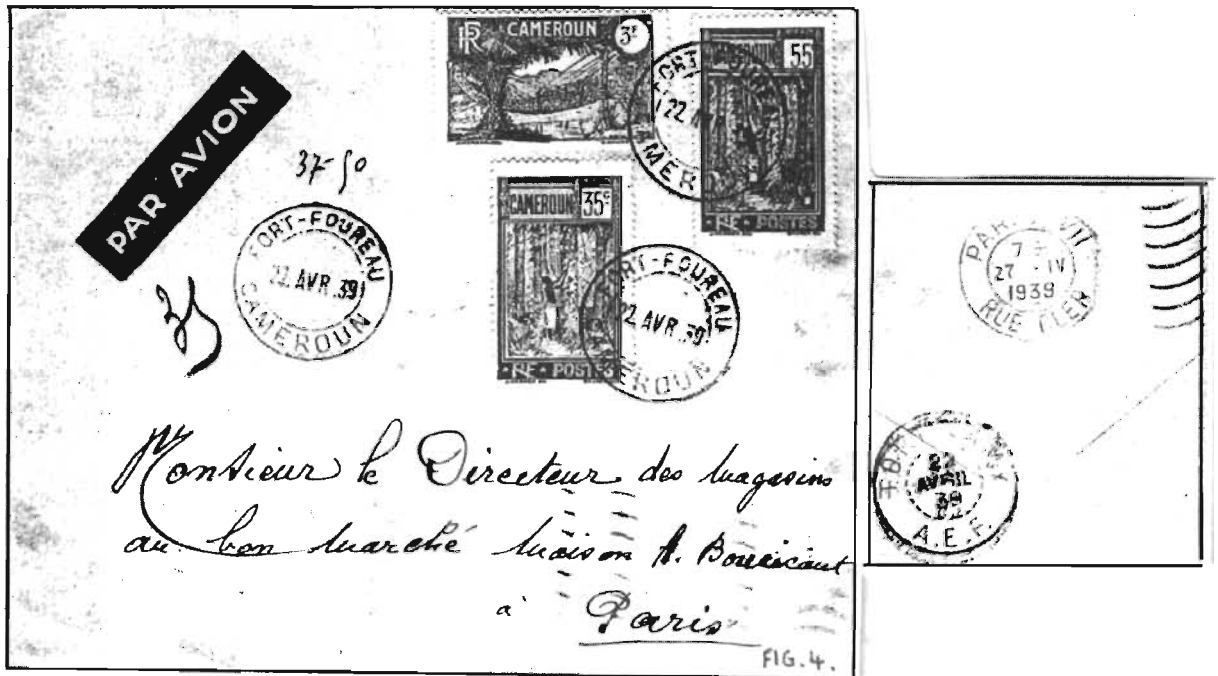 PAR AVION
37-50
RF CAMEROUN 3F
CAMEROUN 55
RF POSTES
CAMEROUN 35c
RF POSTES
FORT-FOUREAU
22 AVR. 39
CAMEROUN
FORT-FOUREAU
22 AVR. 39
Monsieur le Directeur des Magasins
au bon Marché Maison A. Boucicaut
à Paris
FIG. 4.
7
27 - IV
1939
RUE CLER
22
AVRIL
39
A.E.F.